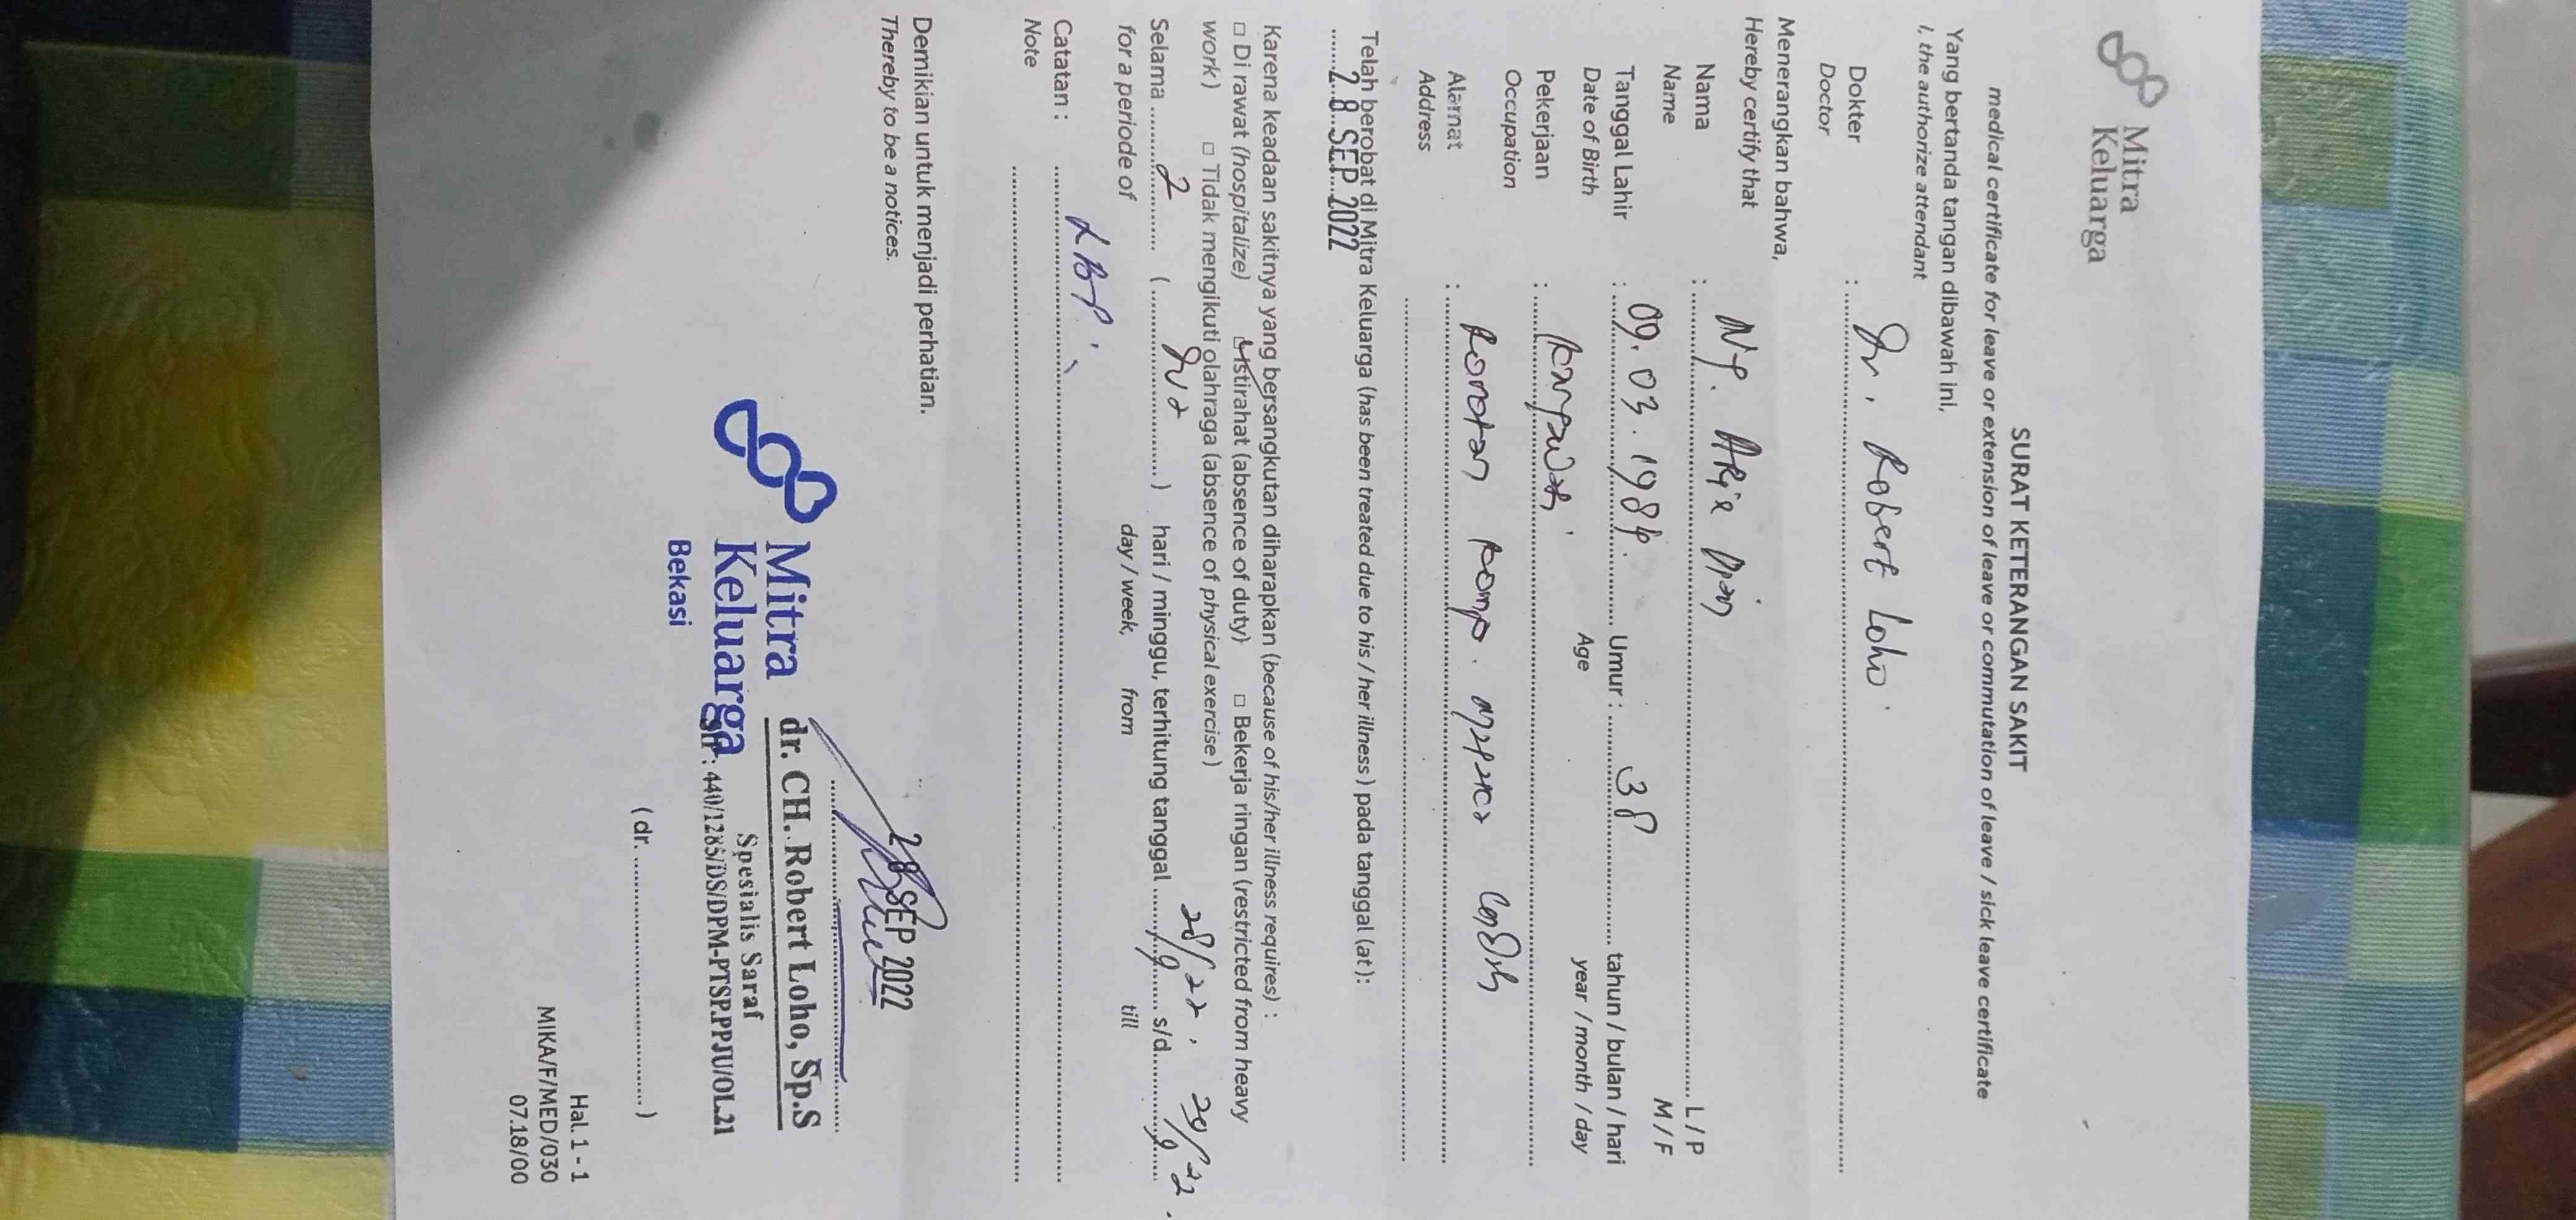 Mitra
Keluarga
SURAT KETERANGAN SAKIT
medical certificate for leave or extension of leave or commutation of leave / sick leave certificate
Yang bertanda tangan dibawah ini,
I, the authorize attendant
Dokter : Dr. Robert Loho.
Doctor
Menerangkan bahwa,
Hereby certify that
Nama : Ny. L / P
Name M / F
Tanggal Lahir : 09.03.1984. Umur : 38 tahun / bulan / hari
Date of Birth Age year / month / day
Pekerjaan : Karyawan
Occupation
Alamat : Rorotan Komp.
Address
Telah berobat di Mitra Keluarga (has been treated due to his / her illness) pada tanggal (at):
28 SEP 2022
Karena keadaan sakitnya yang bersangkutan diharapkan (because of his/her illness requires) :
□ Di rawat (hospitalize) □ Istirahat (absence of duty) □ Bekerja ringan (restricted from heavy
work) □ Tidak mengikuti olahraga (absence of physical exercise)
Selama 2 ( Dua ) hari / minggu, terhitung tanggal 28/9 22, s/d 29/9 22.
for a periode of day / week, from till
Catatan : LBP.
Note
Demikian untuk menjadi perhatian.
Thereby to be a notices.
28 SEP 2022
Mitra
Keluarga
Bekasi
dr. CH. Robert Loho, Sp.S
Spesialis Saraf
SIP : 440/1285/DS/DPM-PTSP.PPJU/OL.21
( dr. )
Hal. 1 - 1
MIKA/F/MED/030
07.18/00